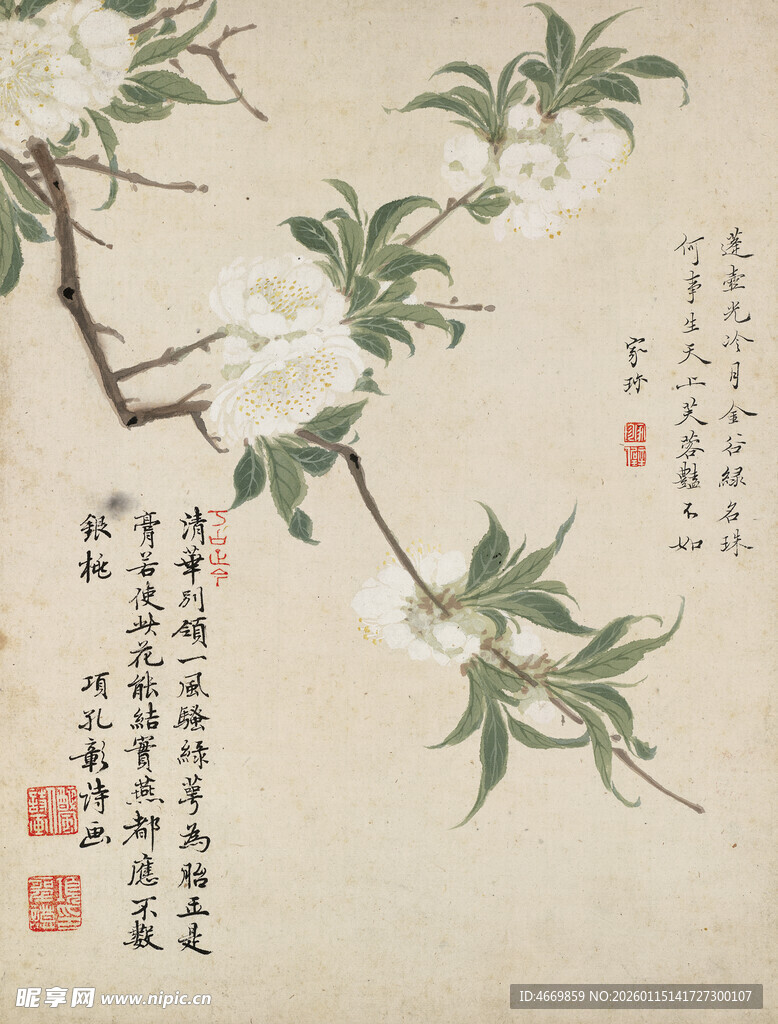 蓬壺光冷月金谷綠名珠
何事生天上芙蓉豔不如
家珍
清華別領一風騷綠萼為胎玉是
膏若使此花能結實燕都應不數
銀桃
項孔彰詩画
昵享网 www.nipic.cn
ID:4669859 NO:20260115141727300107